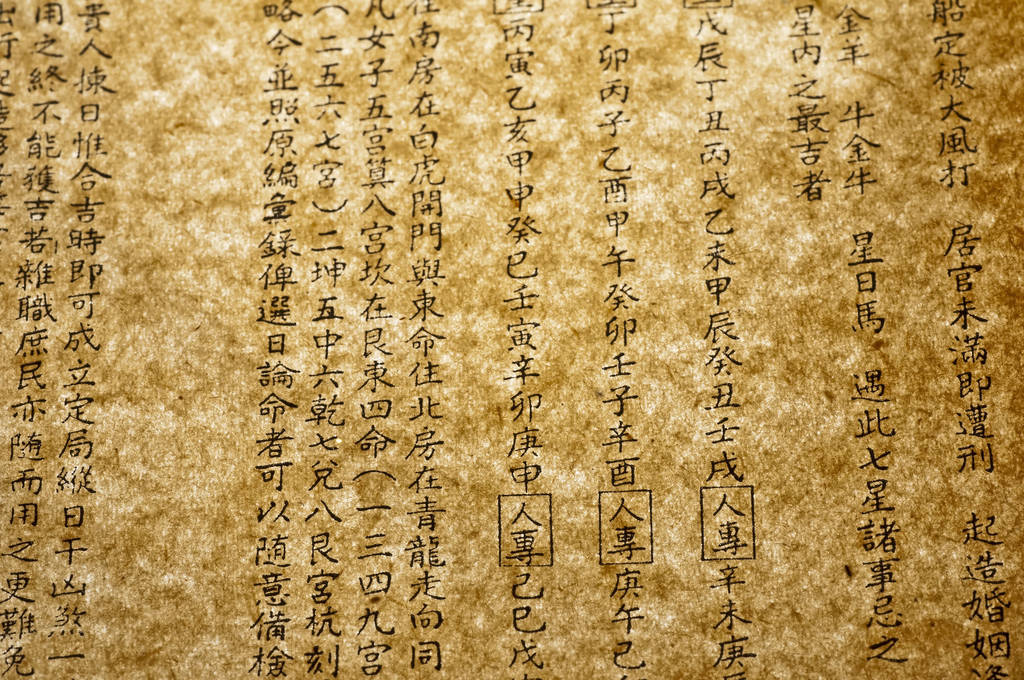 船定被大風打 居官未滿即遭刑 起造婚姻
金羊 牛金牛 星日馬 遇此七星諸事忌之
星內之最吉者
戊辰丁丑丙戌乙未甲辰癸丑壬戌人專辛未庚
丁卯丙子乙酉甲午癸卯壬子辛酉人專庚午己
丙寅乙亥甲申癸巳壬寅辛卯庚申人專己巳戊
在南房在白虎開門與東命住北房在青龍走向同
凡女子五宮算八宮坎在艮東四命(一三四九宮
(二五六七宮)二坤五中六乾七兌八艮宮杭刻
略今並照原編彙錄俾選日論命者可以隨意備檢
貴人揀日惟合吉時即可成立定局縱日干凶煞一
用之終不能獲吉若雜職庶民亦随而用之更難免
出行